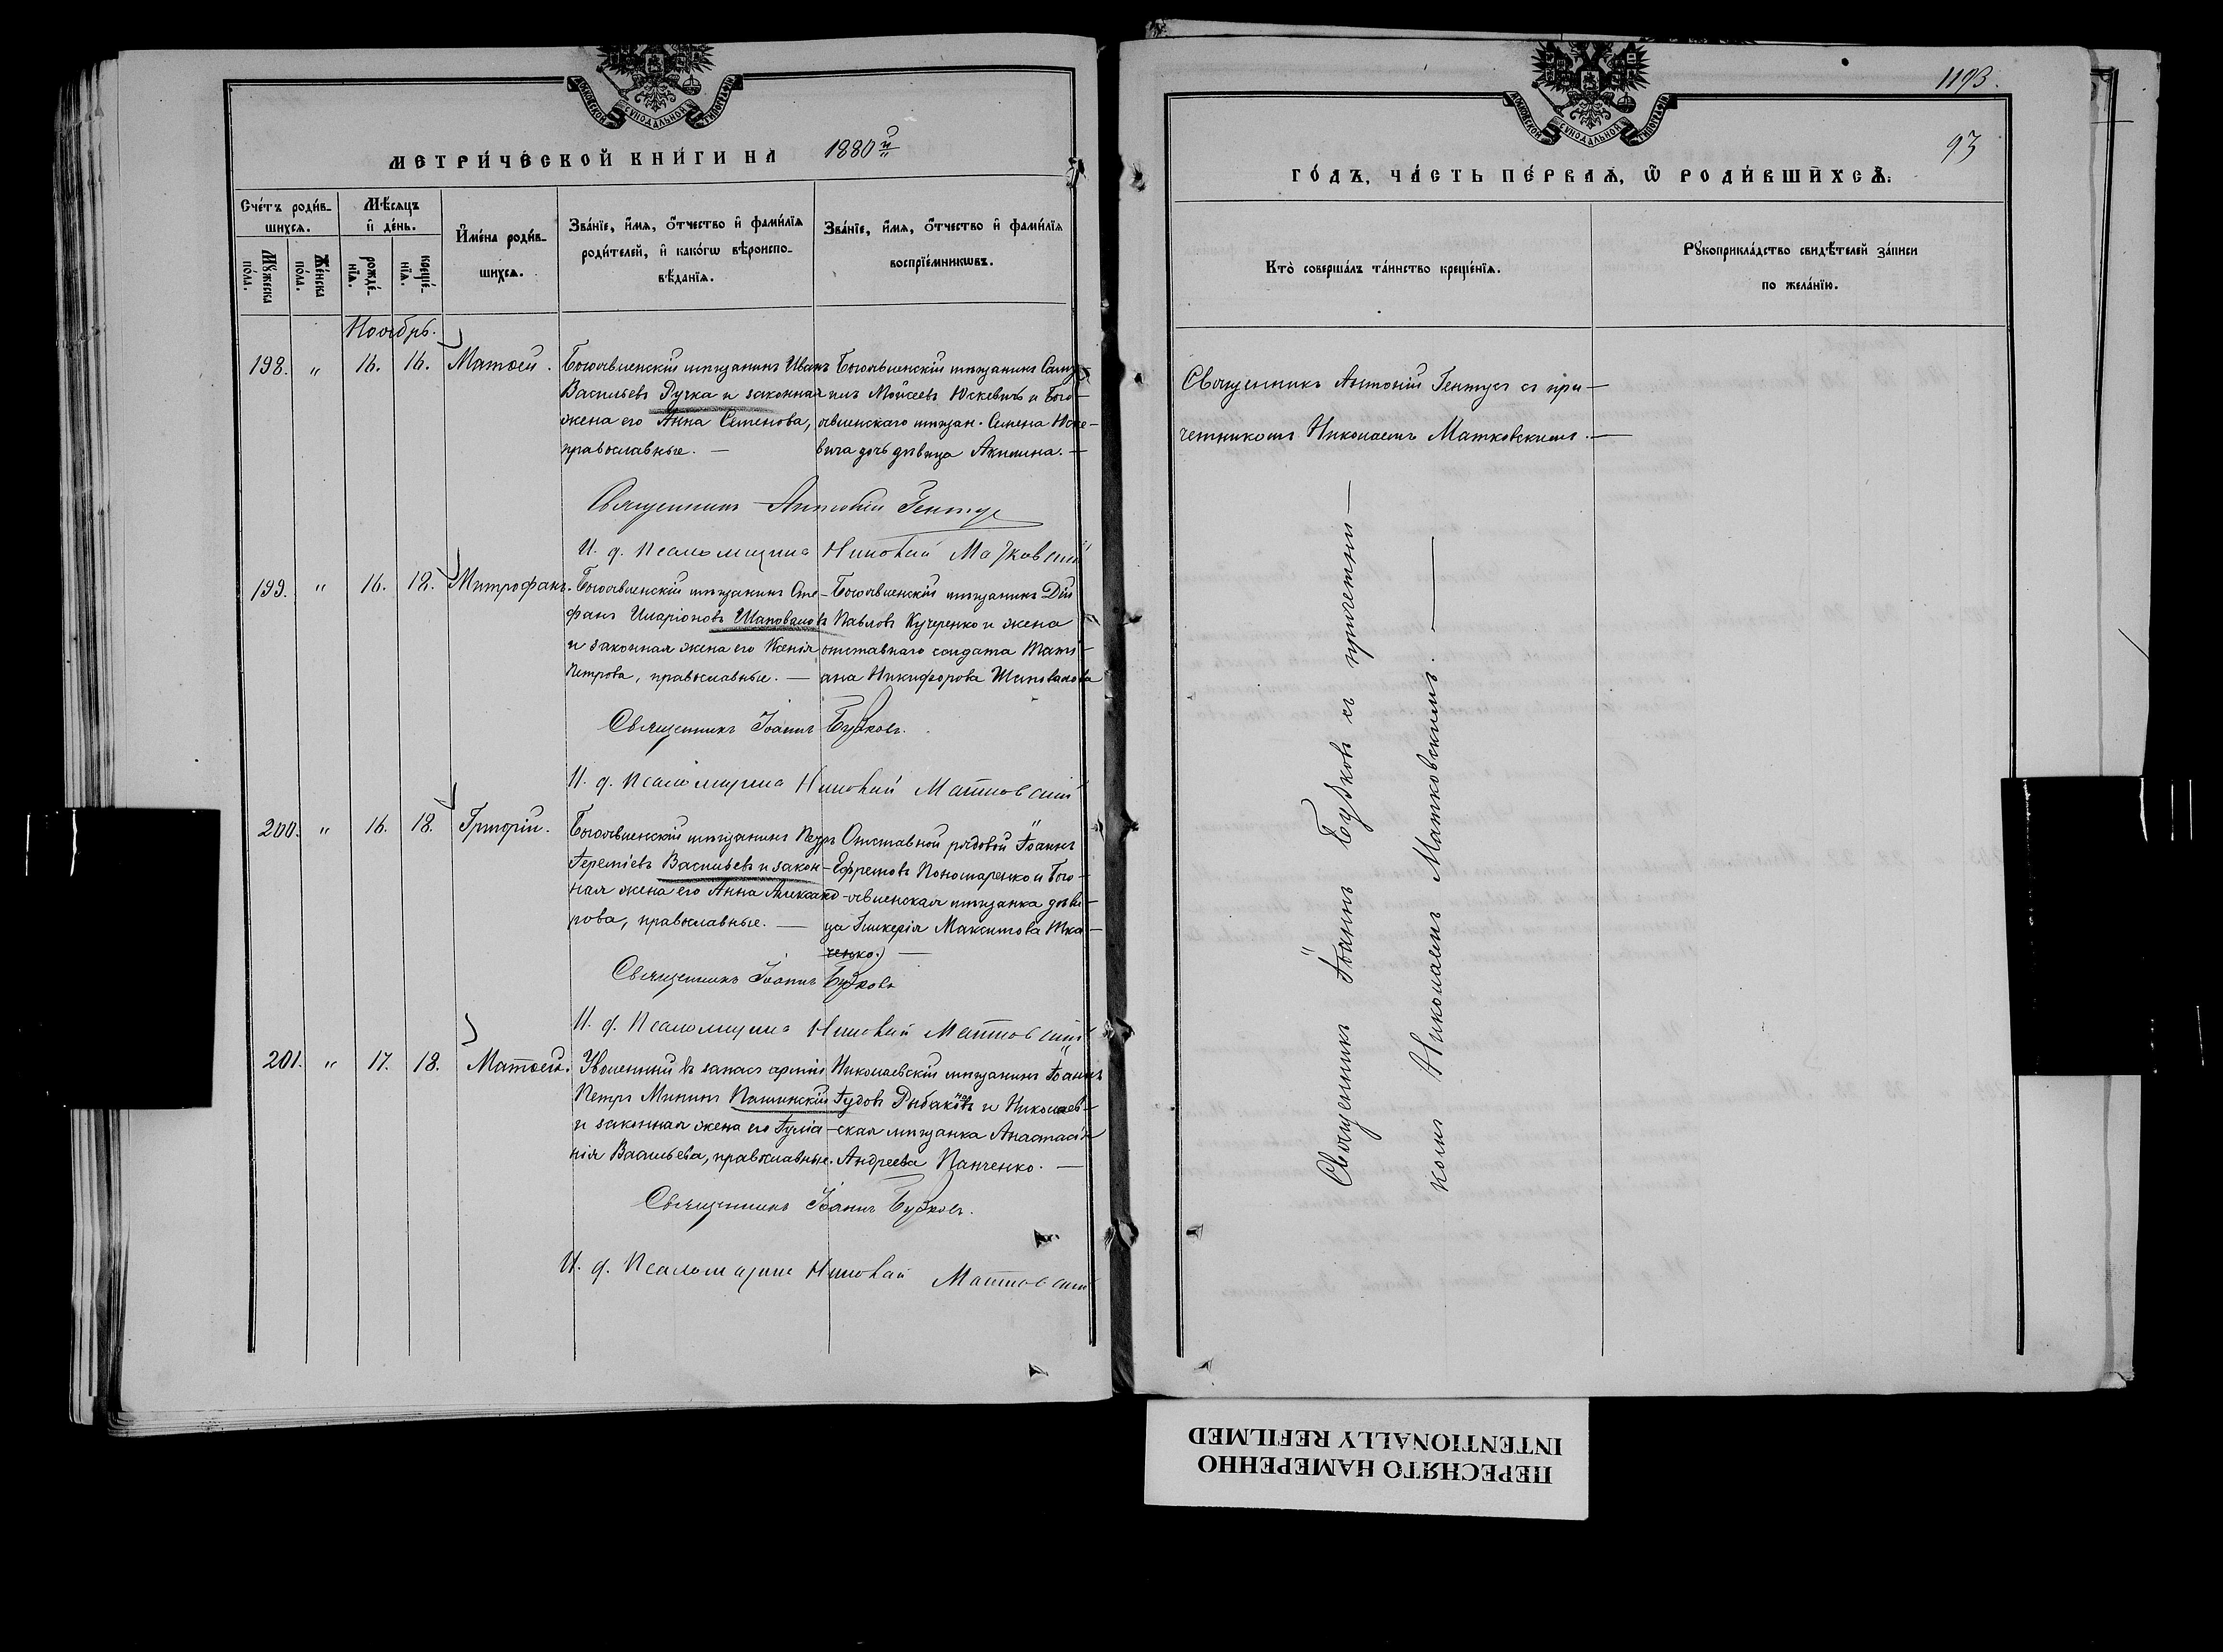 МОСКОВСКОЙ СѴНОДАЛЬНОЙ ТИПОГРАФІИ
МЕТРИ́ЧЕСКОЙ КНИ́ГИ НА 1880й
Сче́тъ роди́в-
шихсѧ.
Мѣ́сяцъ
и҆ де́нь.
Мꙋ́жеска
по́ла.
Же́нска
по́ла.
рожде́-
нїѧ.
креще́-
нїѧ.
И҆мена̀ роди́в-
шихсѧ.
Зва́нїе, и҆́мѧ, ѻ҆́тчество и҆ фами́лїѧ
роди́телей, и҆ како́гѡ вѣроиспо-
вѣ́данїѧ.
Зва́нїе, и҆́мѧ, ѻ҆́тчество и҆ фами́лїѧ
воспрїе́мникѡвъ.
Ноябрь.
198. " 16. 16. Матѳей.
Богоявленскій мѣщанинъ Иванъ
Васильевъ Ручка и законная
жена его Анна Семенова,
православные. —
Богоявленскій мѣщанинъ Саму-
илъ Мойсеевъ Юскевичъ и Бого-
явленскаго мѣщан. Семена Юске-
вича дочь дѣвица Акилина. —
Священникъ Антоній Гентус
И. д. Псаломщика Николай Матковскій
199. " 16. 18. Митрофанъ.
Богоявленскій мѣщанинъ Сте-
фанъ Иларіоновъ Шаповаловъ
и законная жена его Ксенія
Петрова, православные. —
Богоявленскій мѣщанинъ Дій
Павловъ Кучеренко и жена
отставнаго солдата Тать-
яна Никифорова Шаповалова
Священникъ Іоаннъ
И. д. Псаломщика Николай Матковскій
200. " 16. 18. Григорій.
Богоявленскій мѣщанинъ Петръ
Іереміевъ Васильевъ и закон-
ная жена его Анна Александ-
рова, православные. —
Отставной рядовой Іоаннъ
Ефремовъ Пономаренко и Бого-
явленская мѣщанка дѣви-
ца Гликерія Максимова Тка-
ченко. —
Священникъ Іоаннъ
И. д. Псаломщика Николай Матковскій
201. " 17. 18. Матѳей.
Уволенный въ запасъ арміи
Петръ Мининъ
и законная жена его Іуліа-
нія Васильева, православные.
Николаевскій мѣщанинъ Іоаннъ
Іудовъ Рыбаковъ и Николаев-
ская мѣщанка Анастасія
Андреева Панченко. —
Священникъ Іоаннъ
И. д. Псаломщика Николай Матковскій
МОСКОВСКОЙ СѴНОДАЛЬНОЙ ТИПОГРАФІИ
1193.
93
ГО́ДЪ, ЧА́СТЬ ПЕ́РВАѦ, Ѡ҆ РОДИ́ВШИХСѦ.
Кто̀ соверша́лъ та́инство креще́нїѧ.
Рꙋкоприкла́дство свидѣ́телей за́писи
по жела́нїю.
Священникъ Антоній Гентусъ съ при-
четникомъ Николаемъ Матковскимъ. —
Священникъ Іоаннъ съ причетни-
комъ Николаемъ Матковскимъ. —
ПЕРЕСНЯТО НАМЕРЕННО
INTENTIONALLY REFILMED